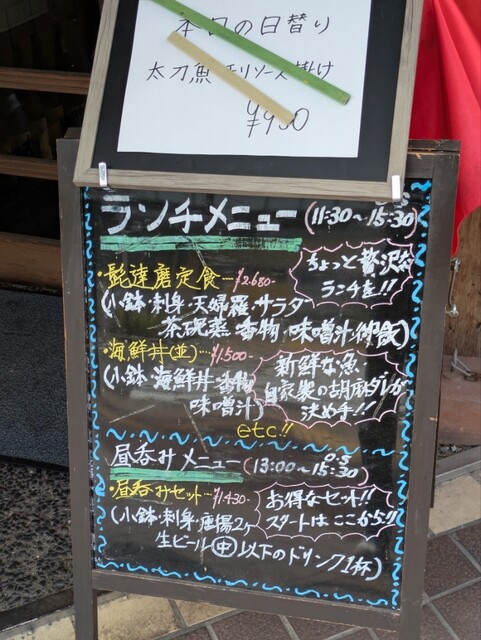 本日の日替り
太刀魚 モリソース掛け
¥930
ランチメニュー (11:30~15:30)
・髭達磨定食…¥2,680-
ちょっと贅沢な
ランチを!!
(小鉢・刺身・天婦羅・サラダ
茶碗蒸 香物・味噌汁・御飯)
・海鮮丼(並)…¥1,500-
新鮮な魚
自家製の胡麻ダレが
決め手!!
(小鉢・海鮮丼・香物
味噌汁)
etc!!
昼呑みメニュー (13:00~15:30) O.S
・昼呑みセット…¥1430-
お得なセット!!
スタートはここから!!
(小鉢・刺身・唐揚2ヶ
生ビール(中)以下のドリンク1杯)